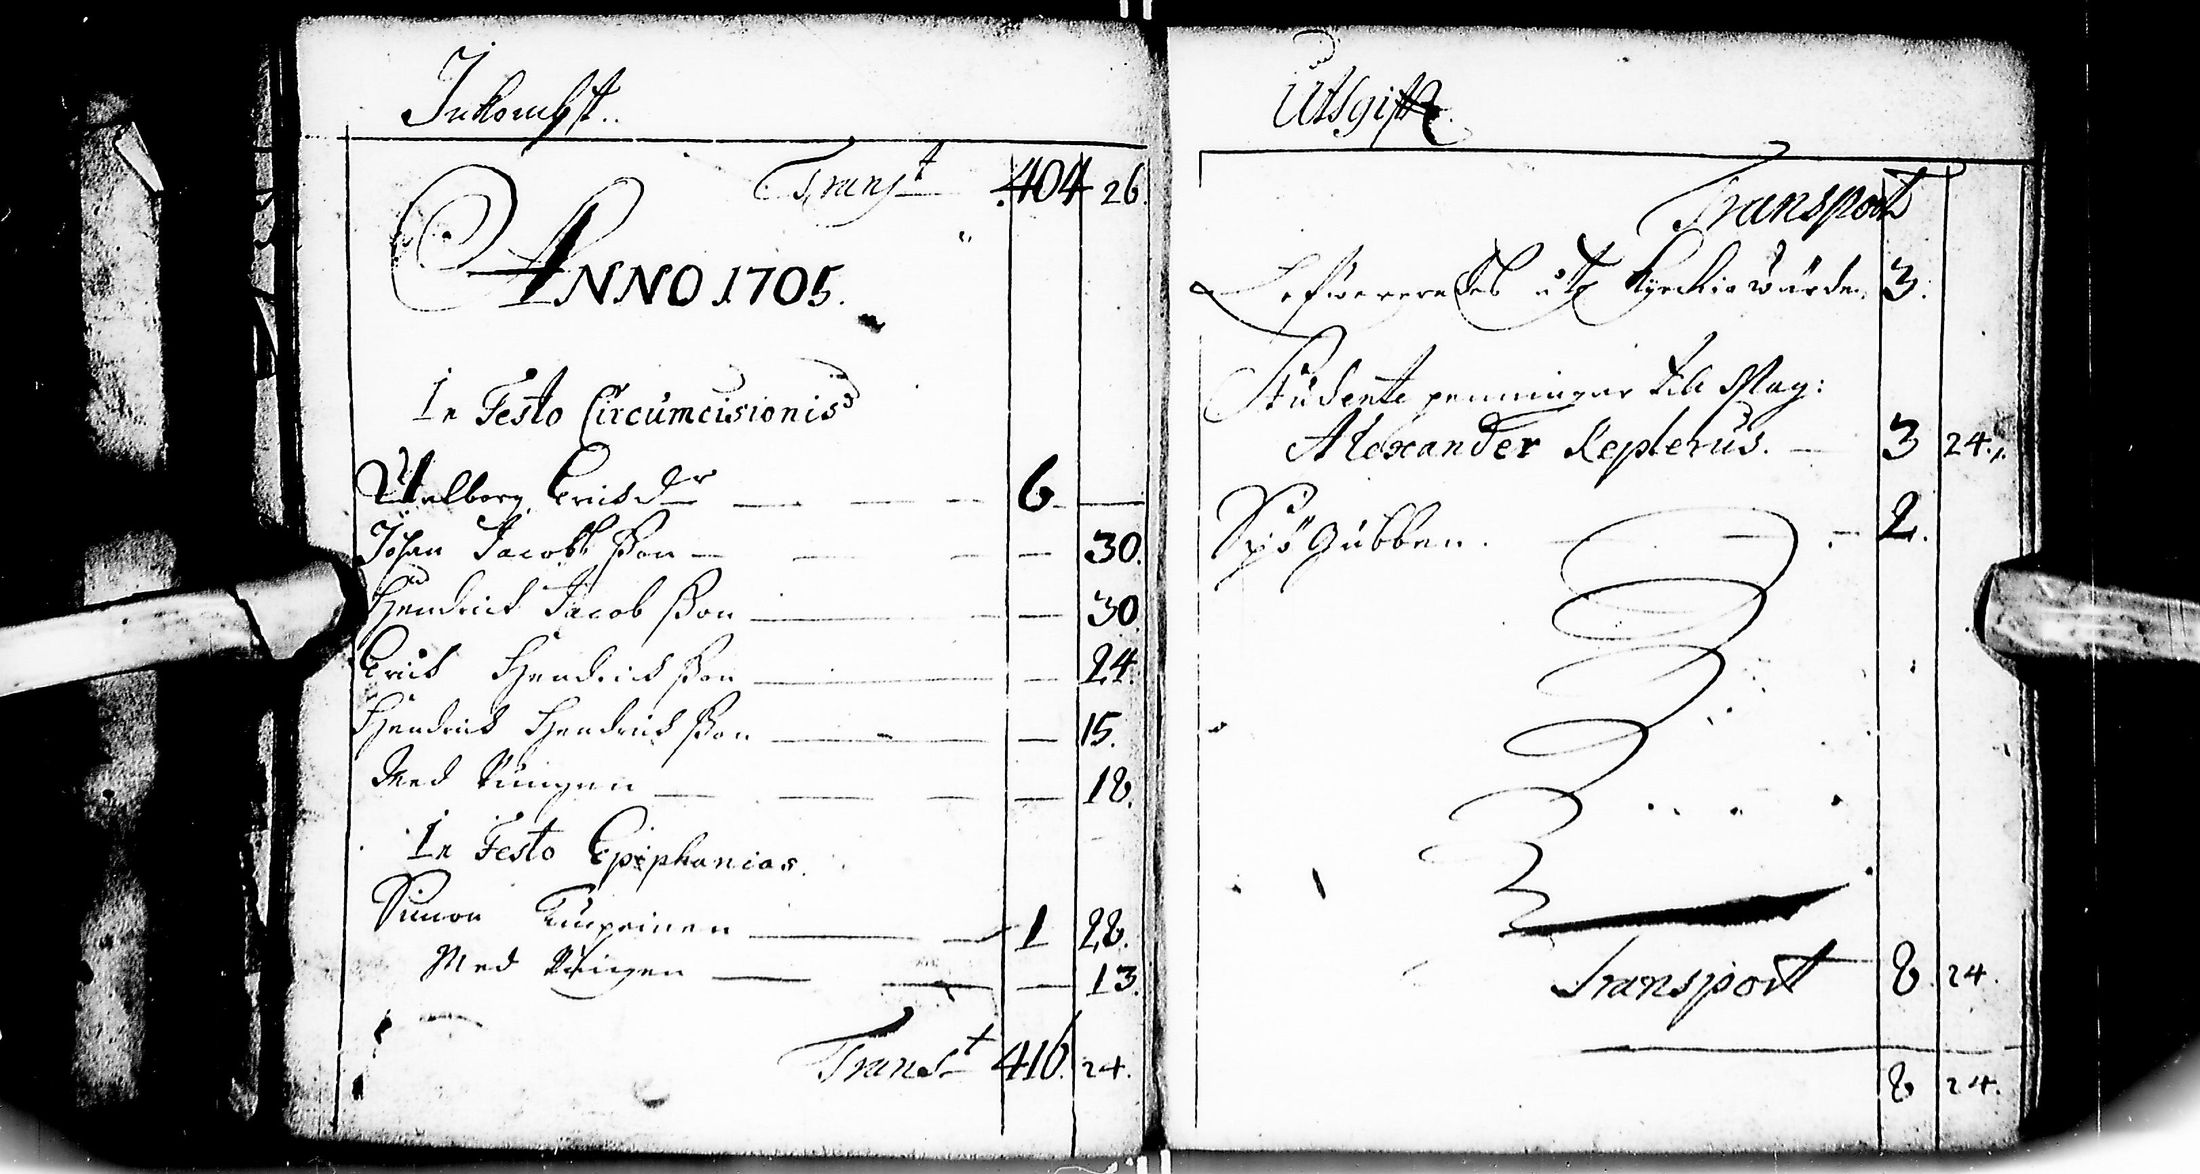 Inkombst..
Transt 404 26.
ANNO 1705.
In Festo Circumcisionis
Walborg Erichsdr 6
Johan Jacobsson 30.
Hendrich Jacobsson 30.
Erich Hendrichsson 24.
Hendrich Hendrichsson 15.
Med Pungen 18.
In Festo Epiphanias.
Simon 1 28.
Med Pungen 13.
Transt 416. 24.
Utgifft.
Transport
Lefwererades åth Kyrckiowärden 3.
Studente penningar till Mag:
Alexander Keplerus. 3 24.
Spögubben. 2.
Transport 8 24.
8 24.